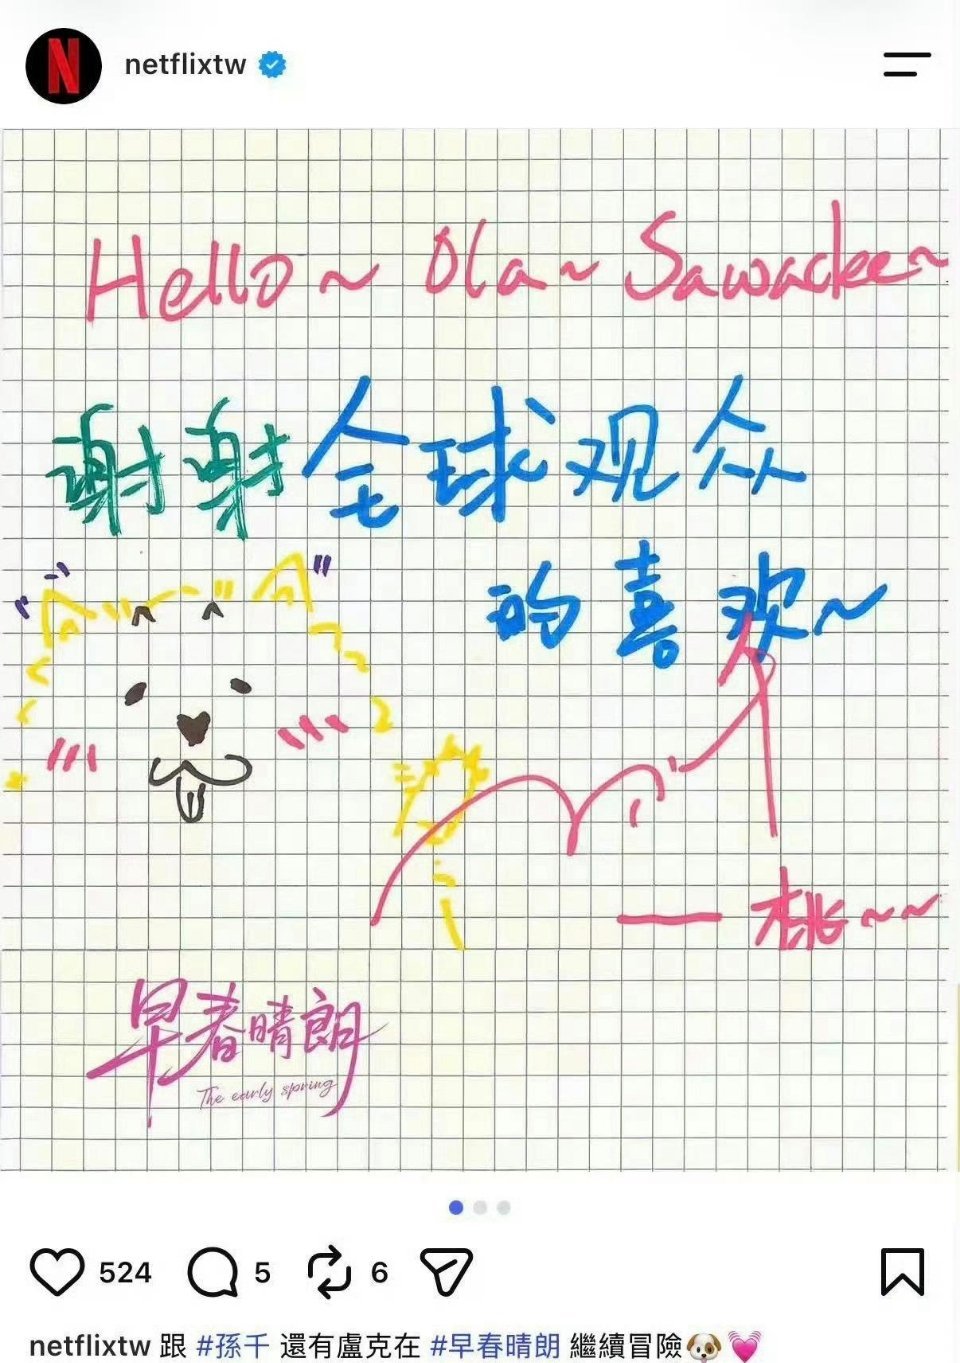 netflixtw
Hello~ Ola~ Sawadee~
谢谢全球观众
的喜欢~
—— 桃~~
早春晴朗
The early spring
524 5 6
netflixtw 跟 #孫千 還有盧克在 #早春晴朗 繼續冒險🐶💓